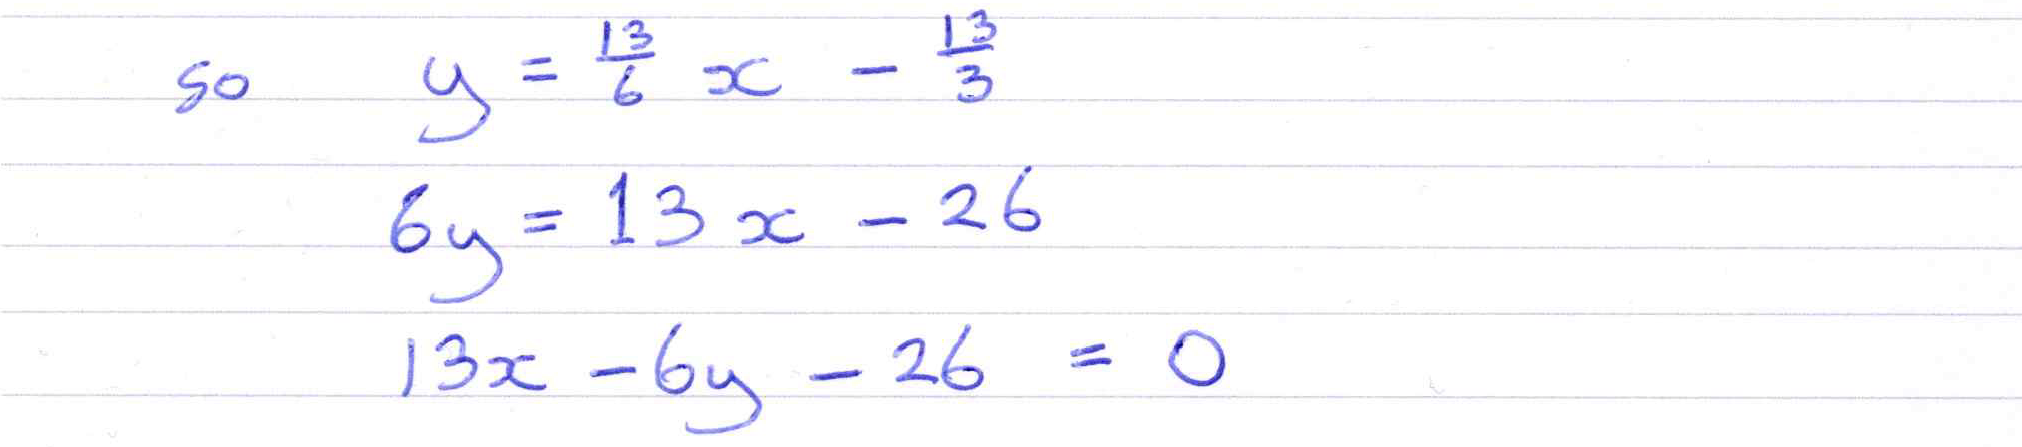 so y = 13/6 x - 13/3
6y = 13x - 26
13x - 6y - 26 = 0